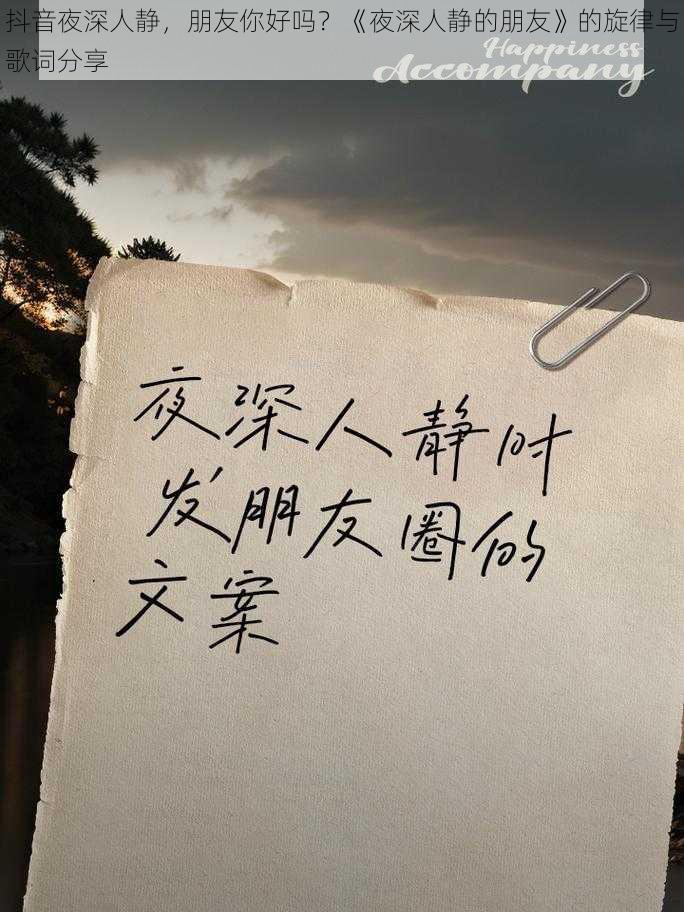 抖音夜深人静，朋友你好吗？《夜深人静的朋友》的旋律与
歌词分享
Happiness
Accompany
夜深人静时
发朋友圈的
文案